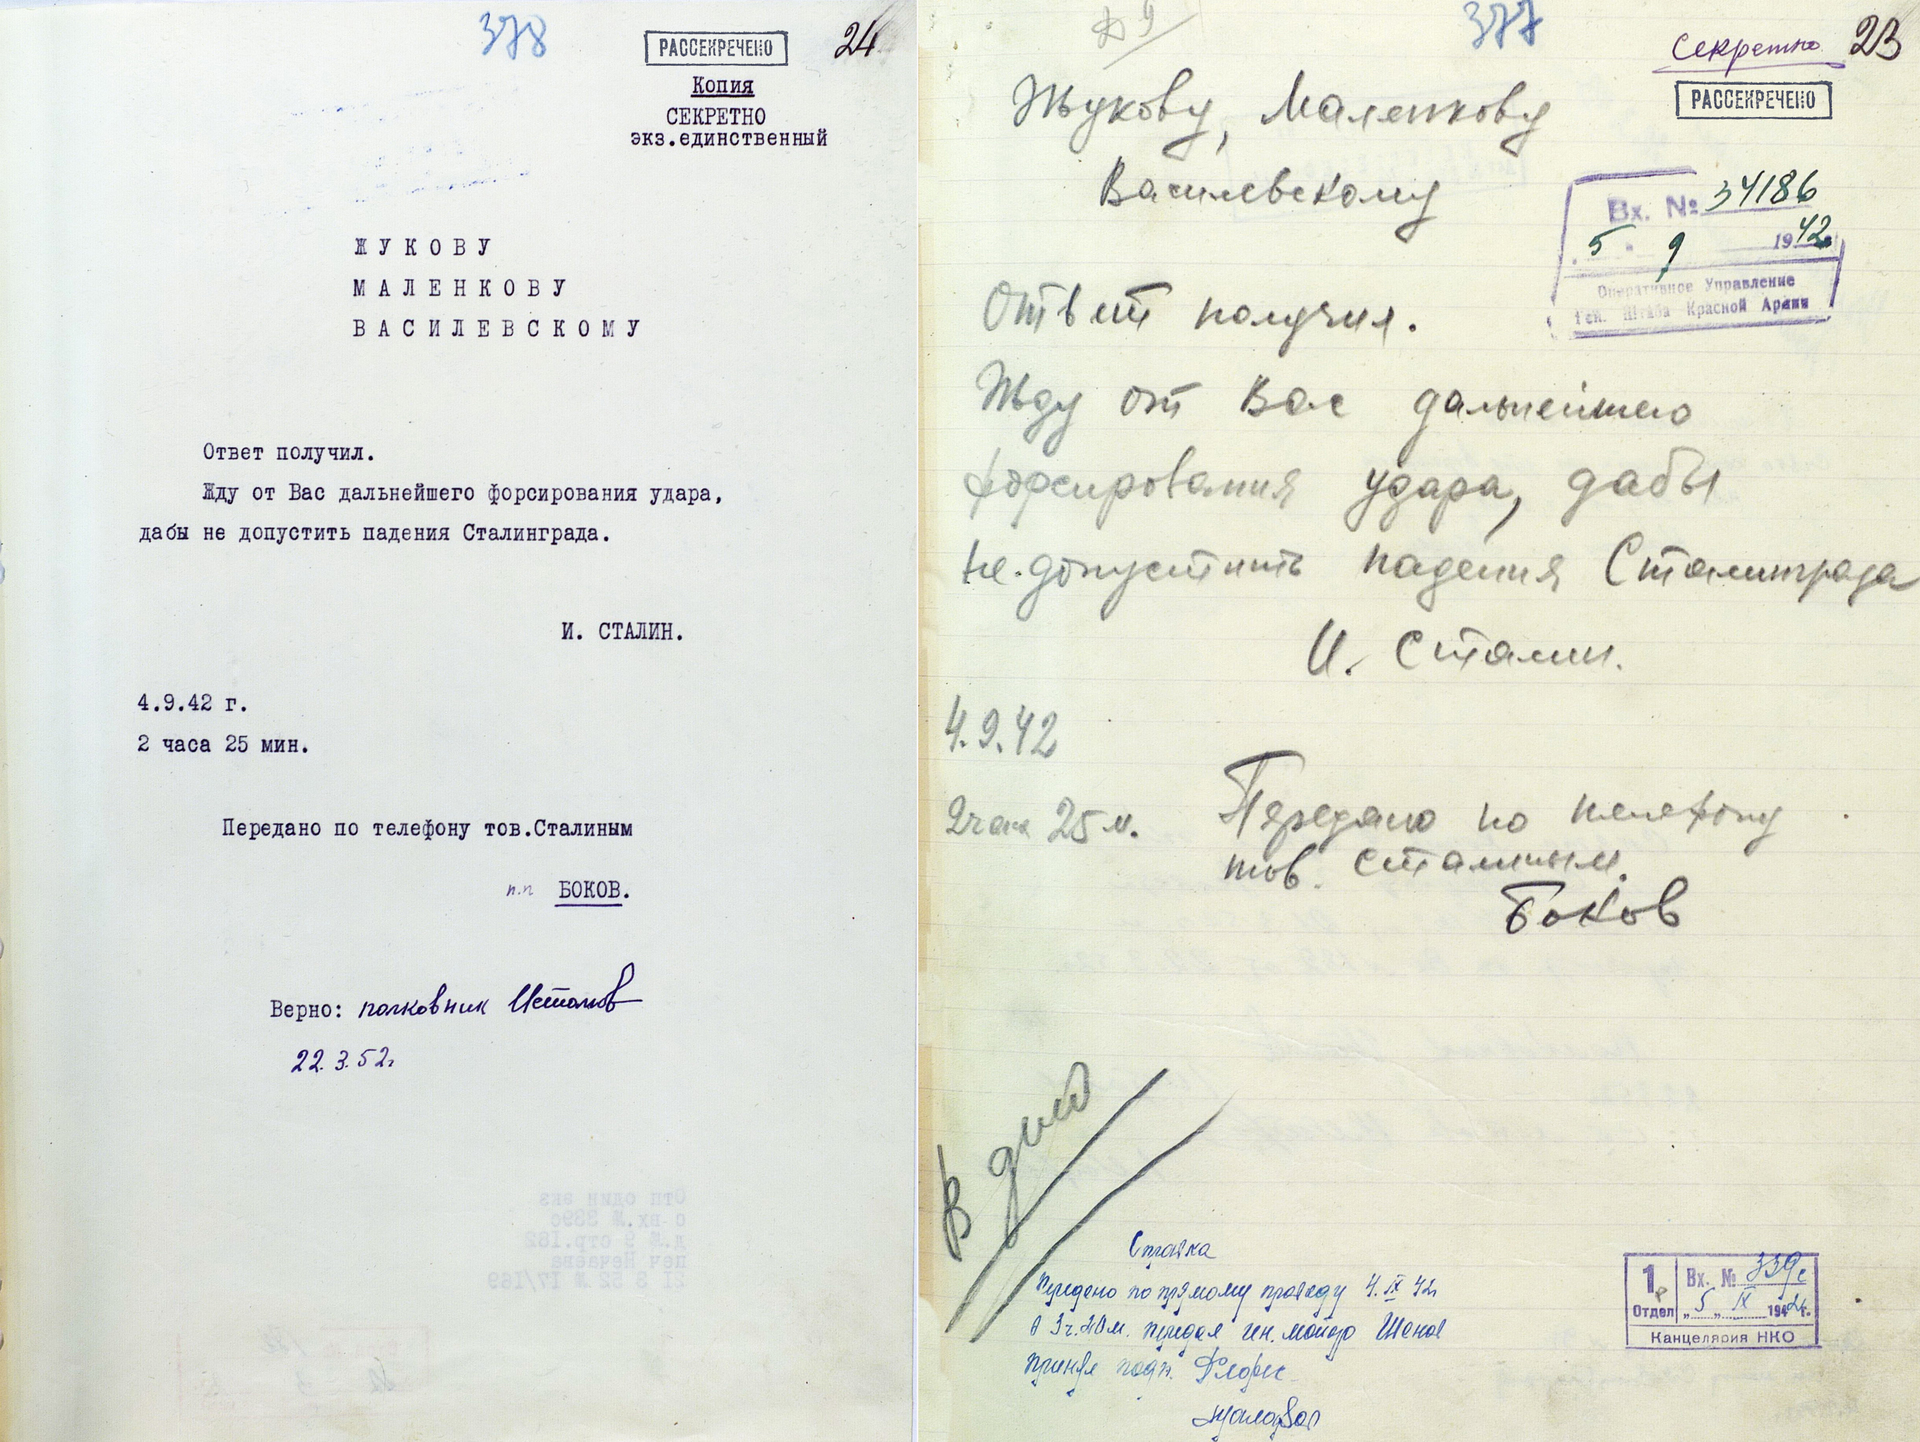 378
РАССЕКРЕЧЕНО
24
Копия
СЕКРЕТНО
экз.единственный
ЖУКОВУ
МАЛЕНКОВУ
ВАСИЛЕВСКОМУ
Ответ получил.
Жду от Вас дальнейшего форсирования удара,
дабы не допустить падения Сталинграда.
И. СТАЛИН.
4.9.42 г.
2 часа 25 мин.
Передано по телефону тов.Сталиным
п.п БОКОВ.
Верно: полковник
22.3.52г
Отп один экз
о вх.№ 339с
д.№ 9 стр.182
печ Нечаева
21 3 52 № 17/169
377
Секретно 23
РАССЕКРЕЧЕНО
Жукову, Маленкову
Василевскому
Вх. № 34186
5 9 1942
Оперативное Управление
Ген. Штаба Красной Армии
Ответ получил.
Жду от Вас дальнейшего
форсирования удара, дабы
не допустить падения Сталинграда
И. Сталин.
4.9.42
2 часа 25 м.
Передано по телефону
тов. Сталиным.
Боков
В дело
Справка
Передано по прямому проводу 4.IX 42г
в 3ч. м. передал ген. майор
принял
1 Отдел
Вх. № 339с
„5„ IX 1942г.
Канцелярия НКО